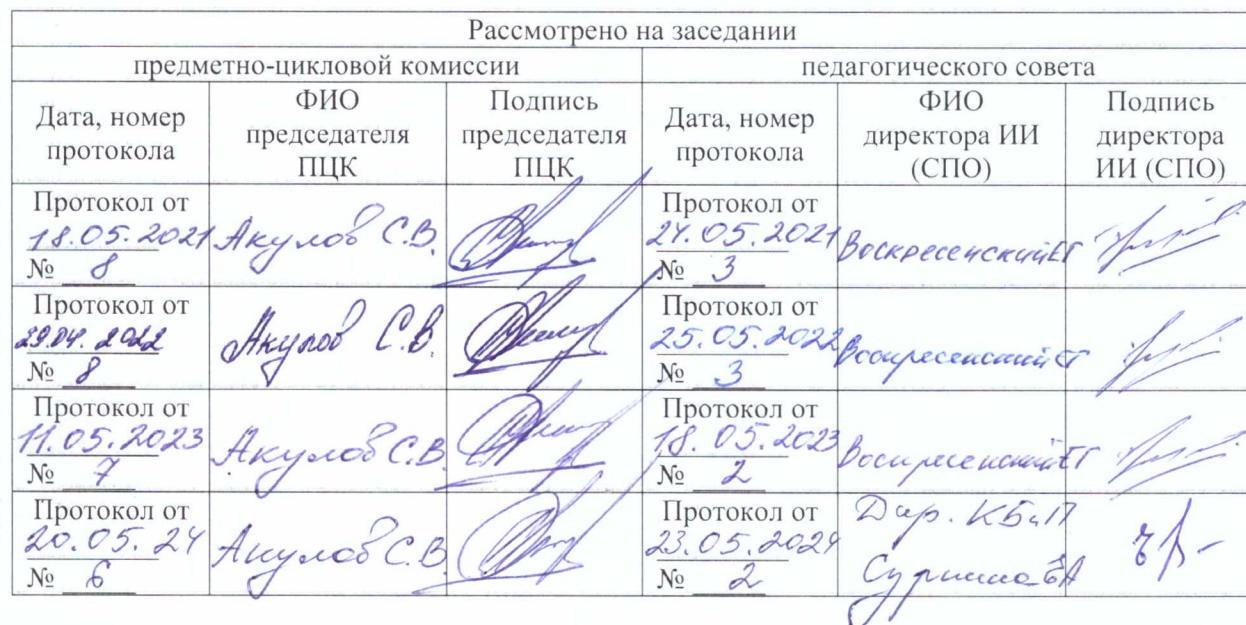 Рассмотрено на заседании
предметно-цикловой комиссии педагогического совета
Дата, номер протокола
ФИО председателя ПЦК
Подпись председателя ПЦК
Дата, номер протокола
ФИО директора ИИ (СПО)
Подпись директора ИИ (СПО)
Протокол от
18.05.2021
№ 8
Акулов С.В.
Протокол от
24.05.2021
№ 3
Воскресенский ЕГ
Протокол от
29.04.2022
№ 8
Акулов С.В.
Протокол от
25.05.2022
№ 3
Воскресенский ЕГ
Протокол от
11.05.2023
№ 7
Акулов С.В
Протокол от
18.05.2023
№ 2
Воскресенский ЕГ
Протокол от
20.05.24
№ 6
Акулов С.В
Протокол от
23.05.2024
№ 2
Дир. КБиП